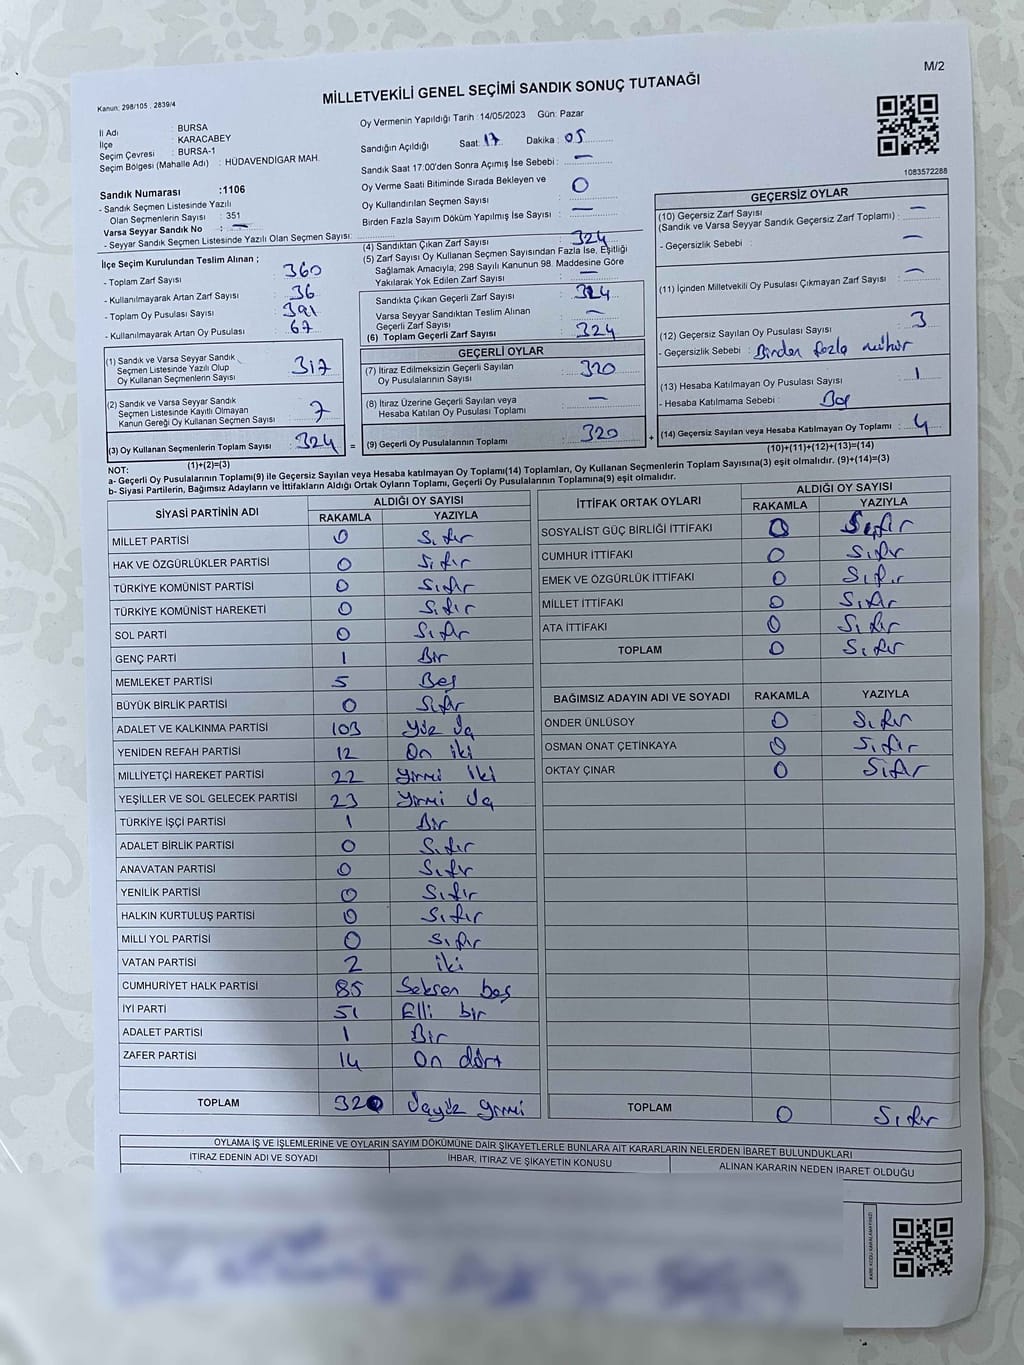 M/2
Kanun: 298/105 , 2839/4
MİLLETVEKİLİ GENEL SEÇİMİ SANDIK SONUÇ TUTANAĞI
İl Adı : BURSA
İlçe : KARACABEY
Seçim Çevresi : BURSA-1
Seçim Bölgesi (Mahalle Adı) : HÜDAVENDİGAR MAH.
Sandık Numarası :1106
- Sandık Seçmen Listesinde Yazılı
Olan Seçmenlerin Sayısı : 351
Varsa Seyyar Sandık No : —
- Seyyar Sandık Seçmen Listesinde Yazılı Olan Seçmen Sayısı:
Oy Vermenin Yapıldığı Tarih : 14/05/2023 Gün: Pazar
Sandığın Açıldığı Saat: 17 Dakika : 05
Sandık Saat 17:00'den Sonra Açımış İse Sebebi : —
Oy Verme Saati Bitiminde Sırada Bekleyen ve
Oy Kullandırılan Seçmen Sayısı : 0
Birden Fazla Sayım Döküm Yapılmış İse Sayısı : —
1083572288
İlçe Seçim Kurulundan Teslim Alınan ;
- Toplam Zarf Sayısı : 360
- Kullanılmayarak Artan Zarf Sayısı : 36
- Toplam Oy Pusulası Sayısı : 391
- Kullanılmayarak Artan Oy Pusulası : 67
(1) Sandık ve Varsa Seyyar Sandık
Seçmen Listesinde Yazılı Olup
Oy Kullanan Seçmenlerin Sayısı : 317
(2) Sandık ve Varsa Seyyar Sandık
Seçmen Listesinde Kayıtlı Olmayan
Kanun Gereği Oy Kullanan Seçmen Sayısı : 7
(3) Oy Kullanan Seçmenlerin Toplam Sayısı : 324
(1)+(2)=(3)
(4) Sandıktan Çıkan Zarf Sayısı : 324
(5) Zarf Sayısı Oy Kullanan Seçmen Sayısından Fazla İse, Eşitliği
Sağlamak Amacıyla, 298 Sayılı Kanunun 98. Maddesine Göre
Yakılarak Yok Edilen Zarf Sayısı : —
Sandıkta Çıkan Geçerli Zarf Sayısı : 324
Varsa Seyyar Sandıktan Teslim Alınan
Geçerli Zarf Sayısı : —
(6) Toplam Geçerli Zarf Sayısı : 324
GEÇERLİ OYLAR
(7) İtiraz Edilmeksizin Geçerli Sayılan
Oy Pusulalarının Sayısı : 320
(8) İtiraz Üzerine Geçerli Sayılan veya
Hesaba Katılan Oy Pusulaları Toplamı : —
= (9) Geçerli Oy Pusulalarının Toplamı : 320
GEÇERSİZ OYLAR
(10) Geçersiz Zarf Sayısı : —
(Sandık ve Varsa Seyyar Sandık Geçersiz Zarf Toplamı)
- Geçersizlik Sebebi : —
(11) İçinden Milletvekili Oy Pusulası Çıkmayan Zarf Sayısı : —
(12) Geçersiz Sayılan Oy Pusulası Sayısı : 3
- Geçersizlik Sebebi : Birden fazla mühür
(13) Hesaba Katılmayan Oy Pusulası Sayısı : 1
- Hesaba Katılmama Sebebi : Boş
+ (14) Geçersiz Sayılan veya Hesaba Katılmayan Oy Toplamı : 4
(10)+(11)+(12)+(13)=(14)
NOT:
a- Geçerli Oy Pusulalarının Toplamı(9) ile Geçersiz Sayılan veya Hesaba katılmayan Oy Toplamı(14) Toplamları, Oy Kullanan Seçmenlerin Toplam Sayısına(3) eşit olmalıdır. (9)+(14)=(3)
b- Siyasi Partilerin, Bağımsız Adayların ve İttifakların Aldığı Ortak Oyların Toplamı, Geçerli Oy Pusulalarının Toplamına(9) eşit olmalıdır.
SİYASİ PARTİNİN ADI ALDIĞI OY SAYISI
RAKAMLA YAZIYLA
MİLLET PARTİSİ 0 Sıfır
HAK VE ÖZGÜRLÜKLER PARTİSİ 0 Sıfır
TÜRKİYE KOMÜNİST PARTİSİ 0 Sıfır
TÜRKİYE KOMÜNİST HAREKETİ 0 Sıfır
SOL PARTİ 0 Sıfır
GENÇ PARTİ 1 Bir
MEMLEKET PARTİSİ 5 Beş
BÜYÜK BİRLİK PARTİSİ 0 Sıfır
ADALET VE KALKINMA PARTİSİ 103 Yüz Üç
YENİDEN REFAH PARTİSİ 12 On iki
MİLLİYETÇİ HAREKET PARTİSİ 22 Yirmi iki
YEŞİLLER VE SOL GELECEK PARTİSİ 23 Yirmi Üç
TÜRKİYE İŞÇİ PARTİSİ 1 Bir
ADALET BİRLİK PARTİSİ 0 Sıfır
ANAVATAN PARTİSİ 0 Sıfır
YENİLİK PARTİSİ 0 Sıfır
HALKIN KURTULUŞ PARTİSİ 0 Sıfır
MİLLİ YOL PARTİSİ 0 Sıfır
VATAN PARTİSİ 2 iki
CUMHURİYET HALK PARTİSİ 85 Seksen beş
İYİ PARTİ 51 Elli bir
ADALET PARTİSİ 1 Bir
ZAFER PARTİSİ 14 On dört
TOPLAM 320 Üçyüz yirmi
İTTİFAK ORTAK OYLARI ALDIĞI OY SAYISI
RAKAMLA YAZIYLA
SOSYALİST GÜÇ BİRLİĞİ İTTİFAKI 0 Sıfır
CUMHUR İTTİFAKI 0 Sıfır
EMEK VE ÖZGÜRLÜK İTTİFAKI 0 Sıfır
MİLLET İTTİFAKI 0 Sıfır
ATA İTTİFAKI 0 Sıfır
TOPLAM 0 Sıfır
BAĞIMSIZ ADAYIN ADI VE SOYADI RAKAMLA YAZIYLA
ÖNDER ÜNLÜSOY 0 Sıfır
OSMAN ONAT ÇETİNKAYA 0 Sıfır
OKTAY ÇINAR 0 Sıfır
TOPLAM 0 Sıfır
OYLAMA İŞ VE İŞLEMLERİNE VE OYLARIN SAYIM DÖKÜMÜNE DAİR ŞİKAYETLERLE BUNLARA AİT KARARLARIN NELERDEN İBARET BULUNDUKLARI
İTİRAZ EDENİN ADI VE SOYADI İHBAR, İTİRAZ VE ŞİKAYETİN KONUSU ALINAN KARARIN NEDEN İBARET OLDUĞU